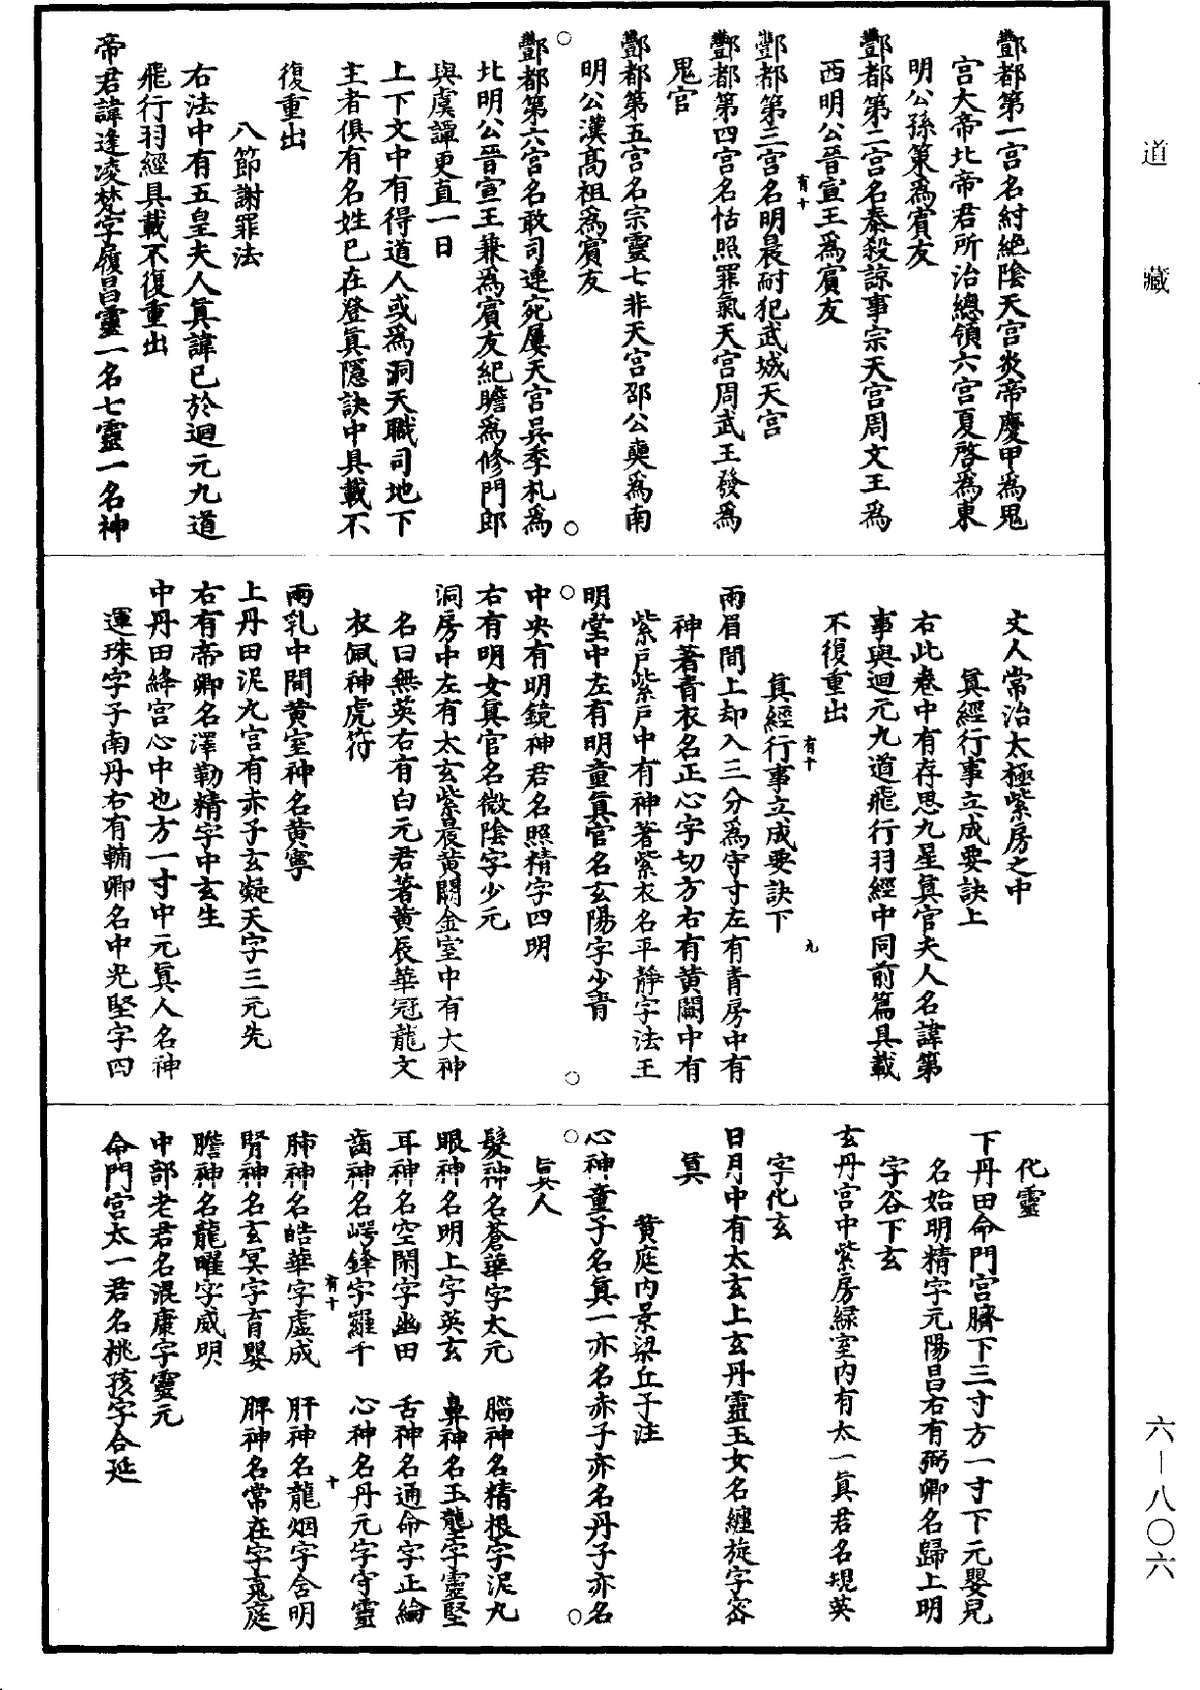 道藏
酆都第一宮名紂絕陰天宮炎帝慶甲為鬼
宮大帝北帝君所治總領六宮夏啓為東
明公孫策為賓友
酆都第二宮名泰殺諒事宗天宮周文王為
西明公晉宣王為賓友
酆都第三宮名明晨耐犯武城天宮
有十
酆都第四宮名恬照罪氣天宮周武王發為
鬼官
酆都第五宮名宗靈七非天宮邵公奭為南
明公漢高祖為賓友
酆都第六宮名敢司連宛屢天宮吳季札為
北明公晉宣王兼為賓友紀瞻為修門郎
與虞譚更直一日
上下文中有得道人或為洞天職司地下
主者俱有名姓已在登真隱訣中具載不
復重出
八節謝罪法
右法中有五皇夫人真諱已於迴元九道
飛行羽經具載不復重出
帝君諱逢凌梵字履昌靈一名七靈一名神
丈人常治太極紫房之中
真經行事立成要訣上
右此卷中有存思九星真官夫人名諱第
事與迴元九道飛行羽經中同前篇具載
不復重出
有十
九
真經行事立成要訣下
兩眉間上却入三分為守寸左有青房中有
神著青衣名正心字切方右有黃闕中有
紫戶紫戶中有神著紫衣名平靜字法王
明堂中左有明童真官名玄陽字少青
中央有明鏡神君名照精字四明
右有明女真官名微陰字少元
洞房中左有太玄紫晨黃闕金室中有大神
名曰無英右有白元君著黃辰華冠龍文
衣佩神虎符
兩乳中間黃室神名黃寧
上丹田泥丸宮有赤子玄凝天字三元先
右有帝卿名澤勒精字中玄生
中丹田絳宮心中也方一寸中元真人名神
運珠字子南丹右有輔卿名中光堅字四
化靈
下丹田命門宮臍下三寸方一寸下元嬰兒
名始明精字元陽昌右有弼卿名歸上明
字谷下玄
玄丹宮中紫房綠室內有太一真君名規英
字化玄
日月中有太玄上玄丹靈玉女名纏旋字密
真
黃庭內景梁丘子注
心神童子名真一亦名赤子亦名丹子亦名
真人
髮神名蒼華字太元 腦神名精根字泥丸
眼神名明上字英玄 鼻神名玉壟字靈堅
耳神名空閑字幽田 舌神名通命字正綸
齒神名崿鋒字羅千 心神名丹元字守靈
有十
十
肺神名皓華字虛成 肝神名龍烟字含明
腎神名玄冥字育嬰 脾神名常在字魂庭
膽神名龍曜字威明
中部老君名混康字靈元
命門宮太一君名桃孩字合延
六—八〇六